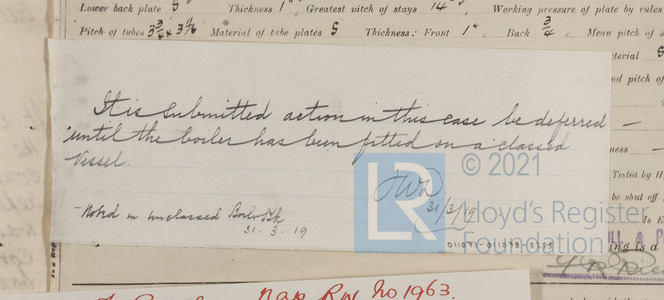 Lower back plate S Thickness 1", Greatest pitch of stays 14" Working pressure of plate by rules
Pitch of tubes 3¾ × 3 11/16 Material of tube plates S Thickness: Front 1", Back ¾, Mean pitch of s
terial S
nd pitch of
It is submitted action in this case be deferred
until the boiler has been fitted on a classed
Vessel.
31/3/19
Noted in unclassed Boiler Bk
31.3.19
ness
Tested by H
be shut off
LR
© 2021
Lloyd's Register
Foundation
ing is a
Rpt No 1963.